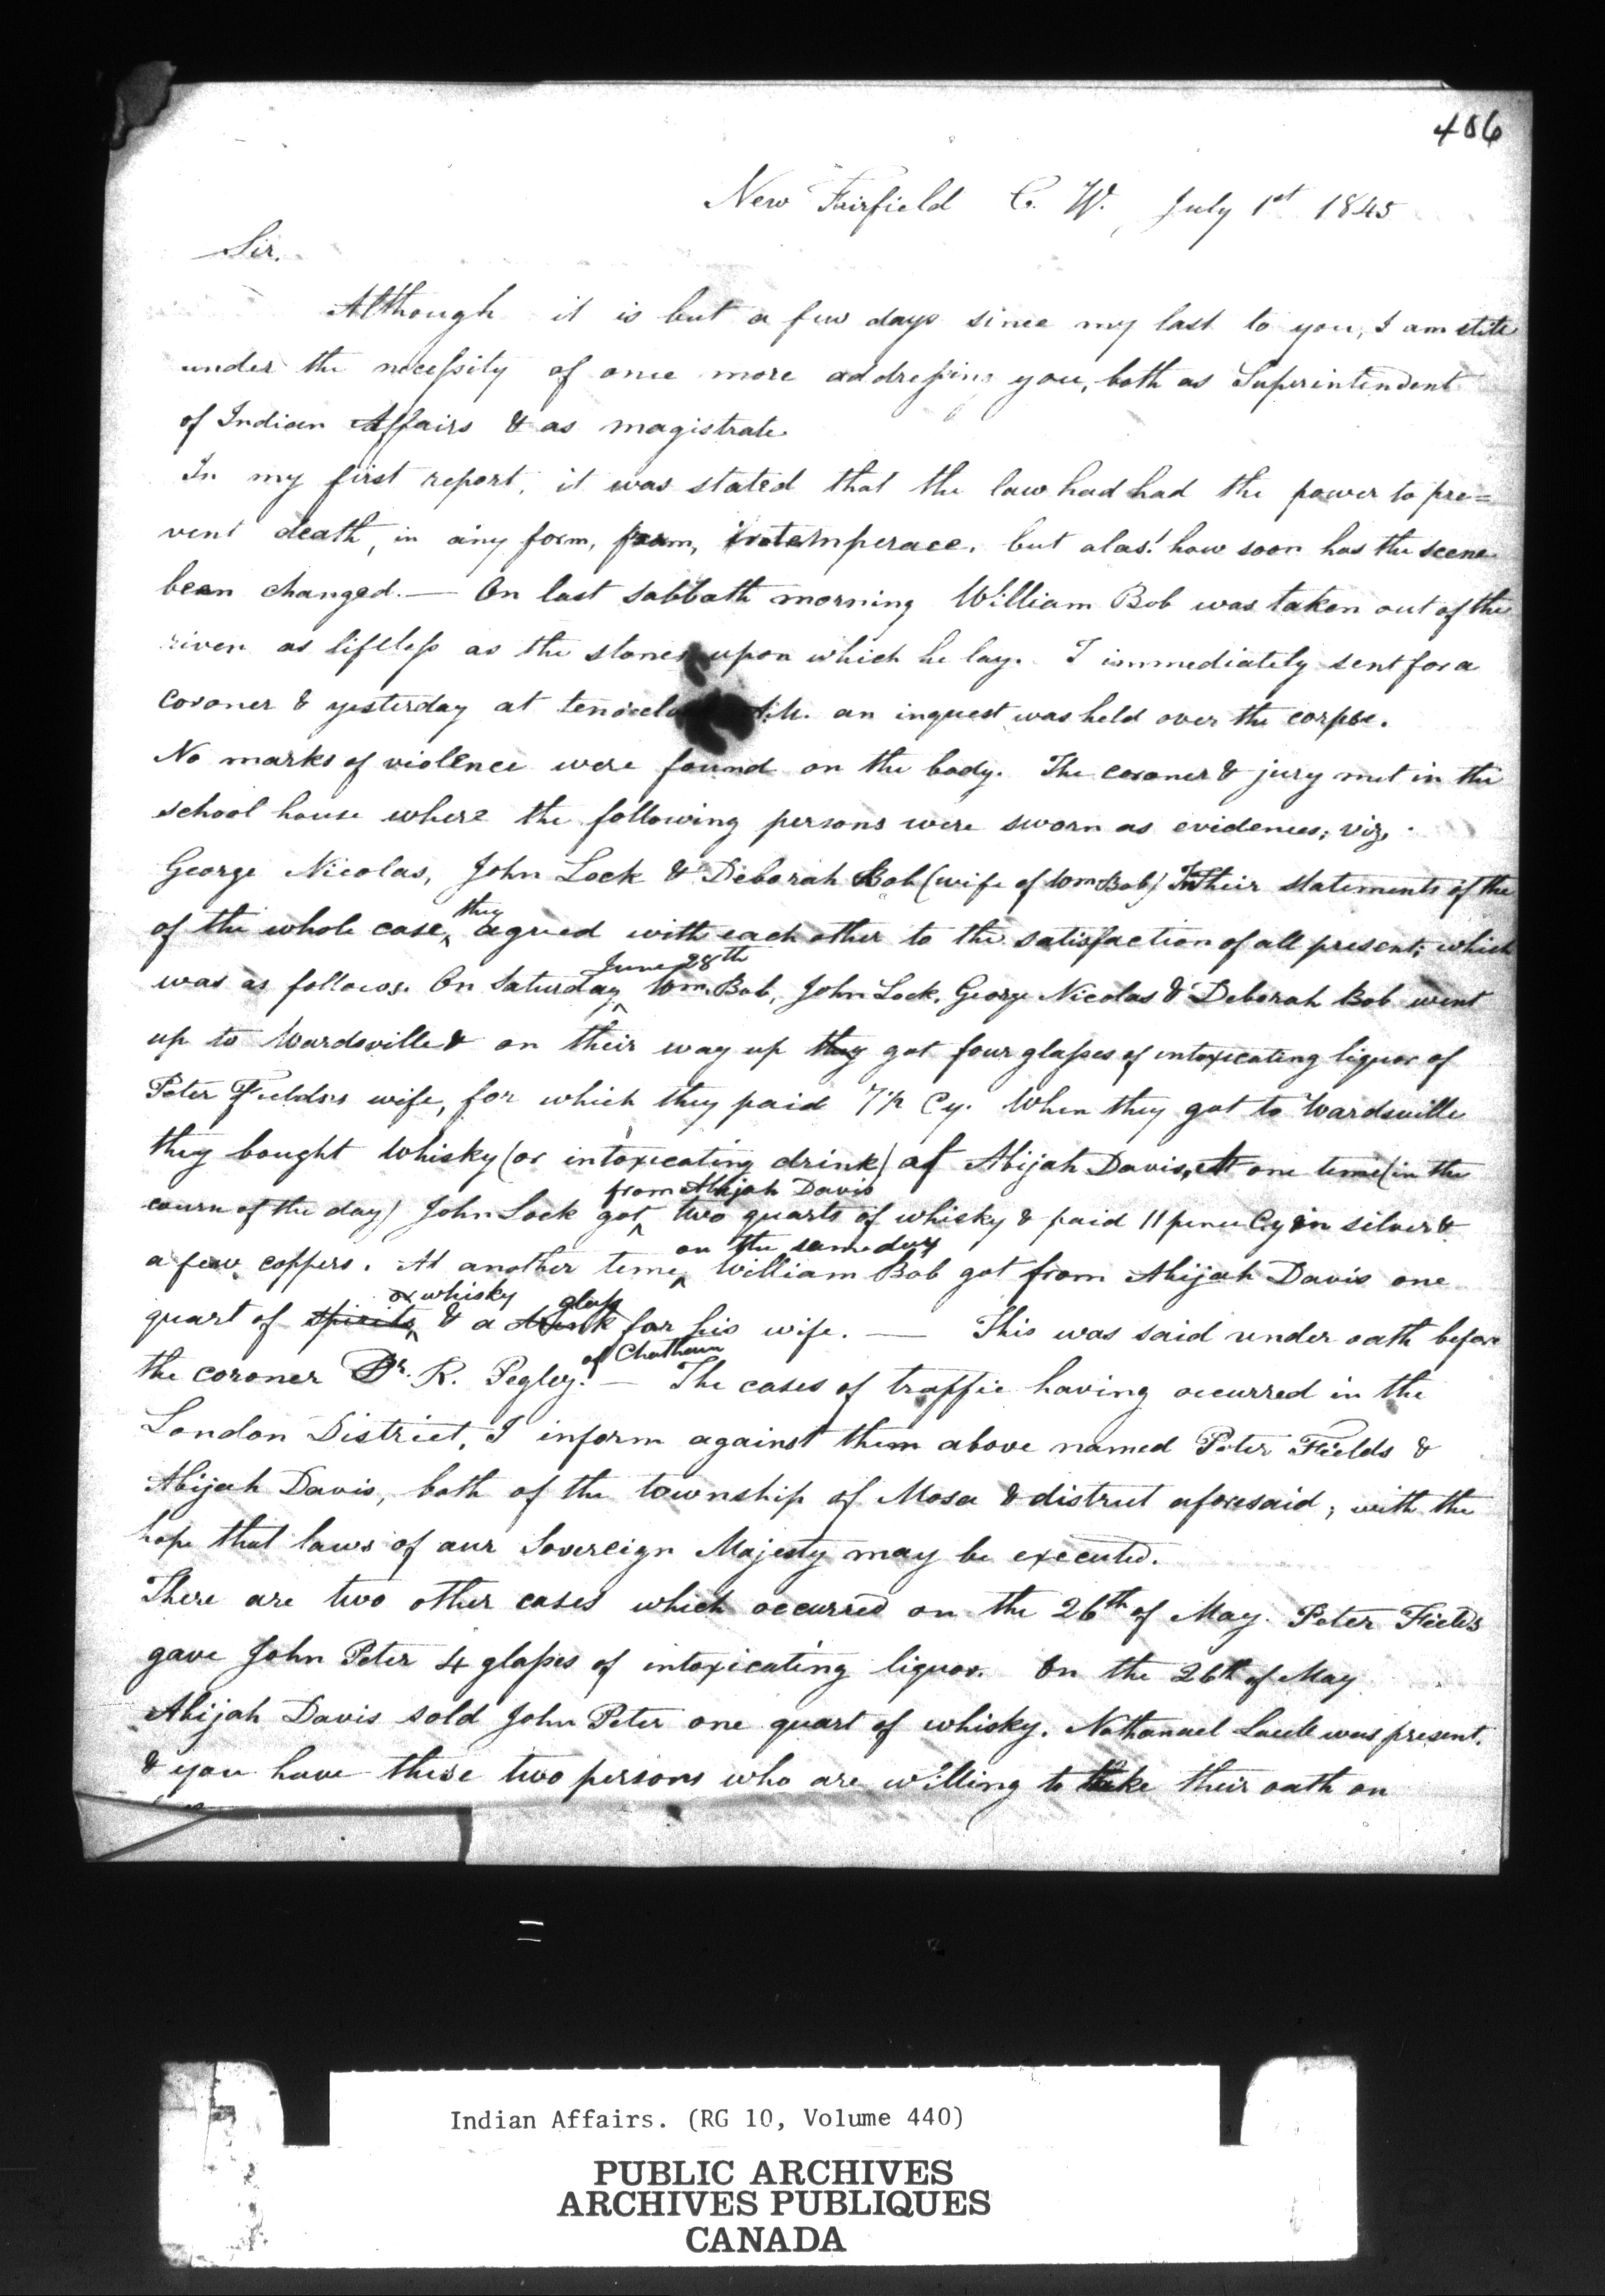 406
New Fairfield C. W. July 1st 1845
Sir.
Although it is but a few days since my last to you, I am still
under the necessity of once more addressing you, both as Superintendent
of Indian Affairs & as magistrate.
In my first report, it was stated that the law had had the power to pre=
vent death, in any form, from, intemperace. but alas! how soon has the scene
been changed. — On last sabbath morning William Bob was taken out of the
river as lifeless as the stones upon which he lay. I immediately sent for a
coroner & yesterday at ten A.M. an inquest was held over the corpse.
No marks of violence were found on the body. The coroner & jury met in the
school house where the following persons were sworn as evidences; viz.
George Nicolas, John Lock & Deborah Bob (wife of Wm Bob) In their statements of the
of the whole case, they agreed with each other to the satisfaction of all present; which
was as follows. On Saturday June 28th Wm. Bob, John Lock, George Nicolas & Deborah Bob went
up to Wardsville & on their way up they got four glasses of intoxicating liquor of
Peter Fields wife, for which they paid Cy. When they got to Wardsville
they bought whisky (or intoxicating drink) at Abijah Davis, At one time (in the
course of the day) John Lock got from Abijah Davis two quarts of whisky & paid 11 pence Cy in silver &
a few coppers. At another time, on the same day William Bob got from Abijah Davis one
quart of spirits or whisky & a drink glass for his wife. — This was said under oath before
the coroner Dr. R. Pegley. of Chatham — The cases of traffic having occurred in the
London District, I inform against them above named Peter Fields &
Abijah Davis, both of the township of Mosa & district aforesaid; with the
hope that laws of our Sovereign Majesty may be executed.
There are two other cases which occurred on the 26th of May. Peter Fields
gave John Peter 4 glasses of intoxicating liquor. On the 26th of May
Abijah Davis sold John Peter one quart of whisky. Nathanael was present.
& you have these two persons who are willing to take their oath on
Indian Affairs. (RG 10, Volume 440)
PUBLIC ARCHIVES
ARCHIVES PUBLIQUES
CANADA